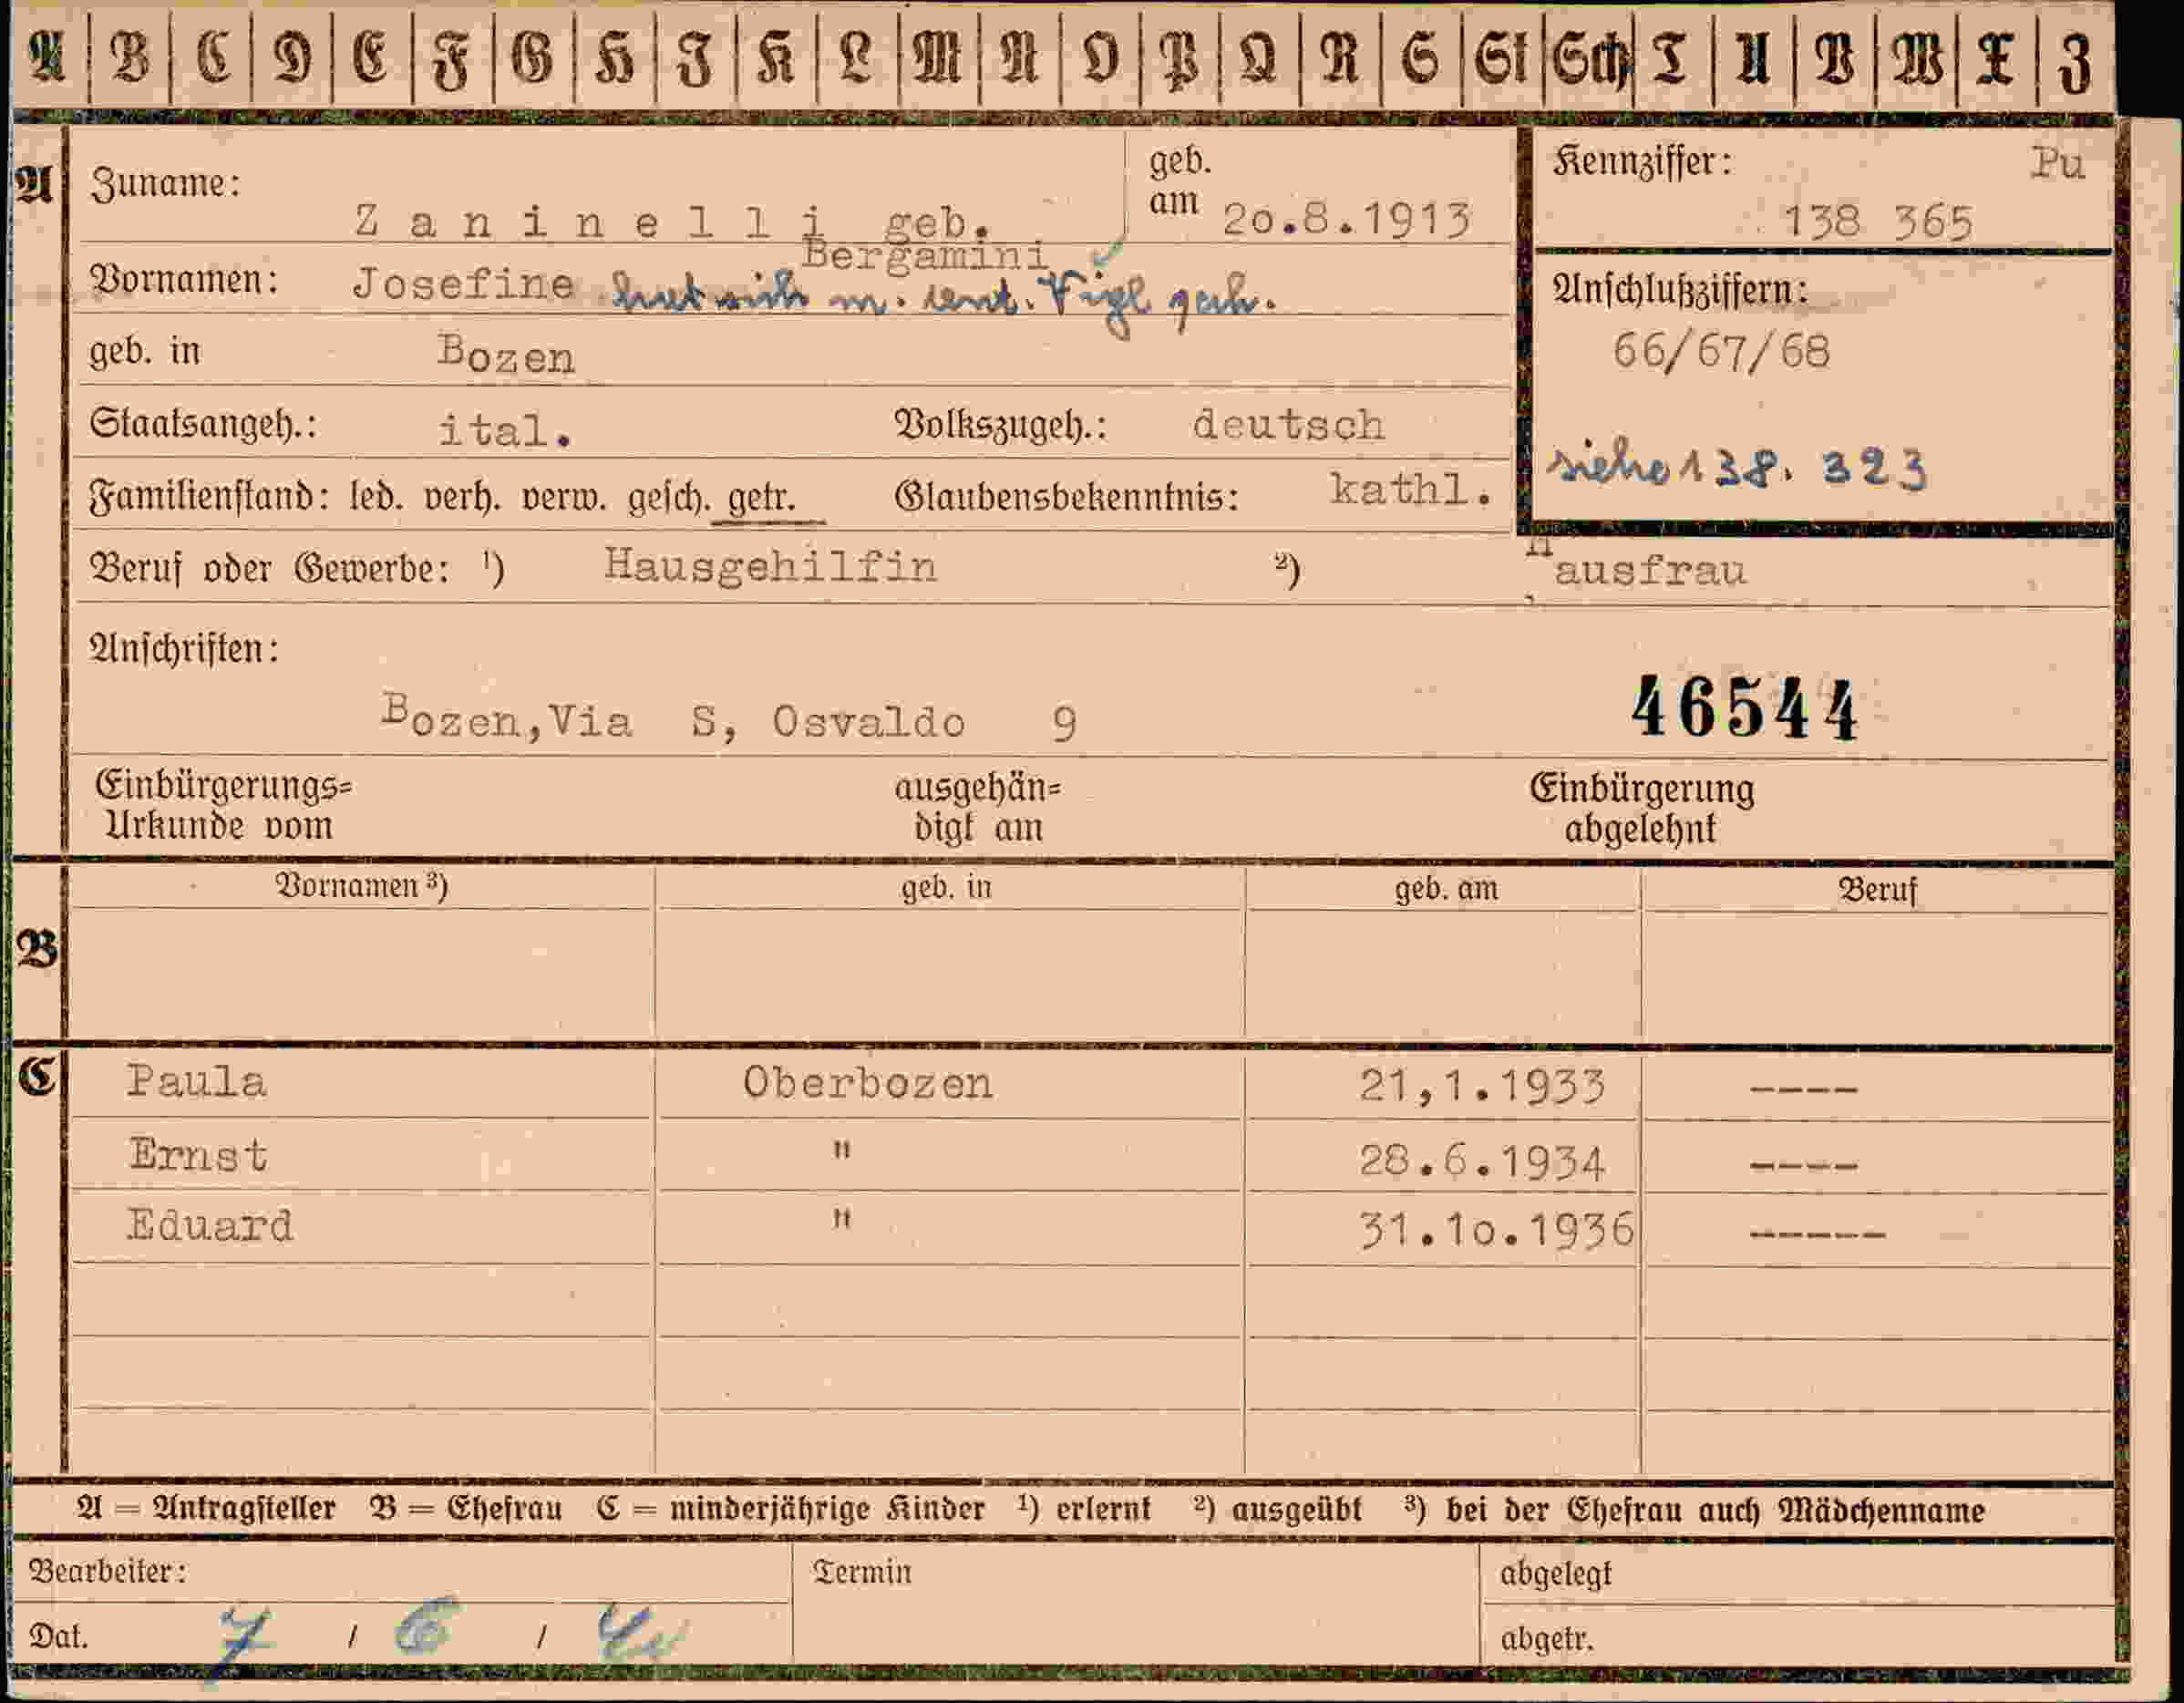 A B C D E F G H I K L M N O P Q R S St Sch T U V W X Z
A Zuname: Zaninelli geb. Bergamini
geb. am 20.8.1913
Kennziffer: Pu
138 365
Vornamen: Josefine hat sich m. Vigl
Anschlußziffern:
66/67/68
siehe 138. 323
geb. in Bozen
Staatsangeh.: ital. Volkszugeh.: deutsch
Familienstand: led. verh. verw. gesch. getr. Glaubensbekenntnis: kathl.
Beruf oder Gewerbe: 1) Hausgehilfin 2) Hausfrau
Anschriften:
Bozen,Via S, Osvaldo 9
46544
Einbürgerungs=
Urkunde vom
ausgehän=
digt am
Einbürgerung
abgelehnt
B Vornamen 3) geb. in geb. am Beruf
C Paula Oberbozen 21,1.1933 ----
Ernst " 28.6.1934 ----
Eduard " 31.10.1936 -----
A = Antragsteller B = Ehefrau C = minderjährige Kinder 1) erlernt 2) ausgeübt 3) bei der Ehefrau auch Mädchenname
Bearbeiter: Termin abgelegt
Dat. 7 / 6 / abgetr.